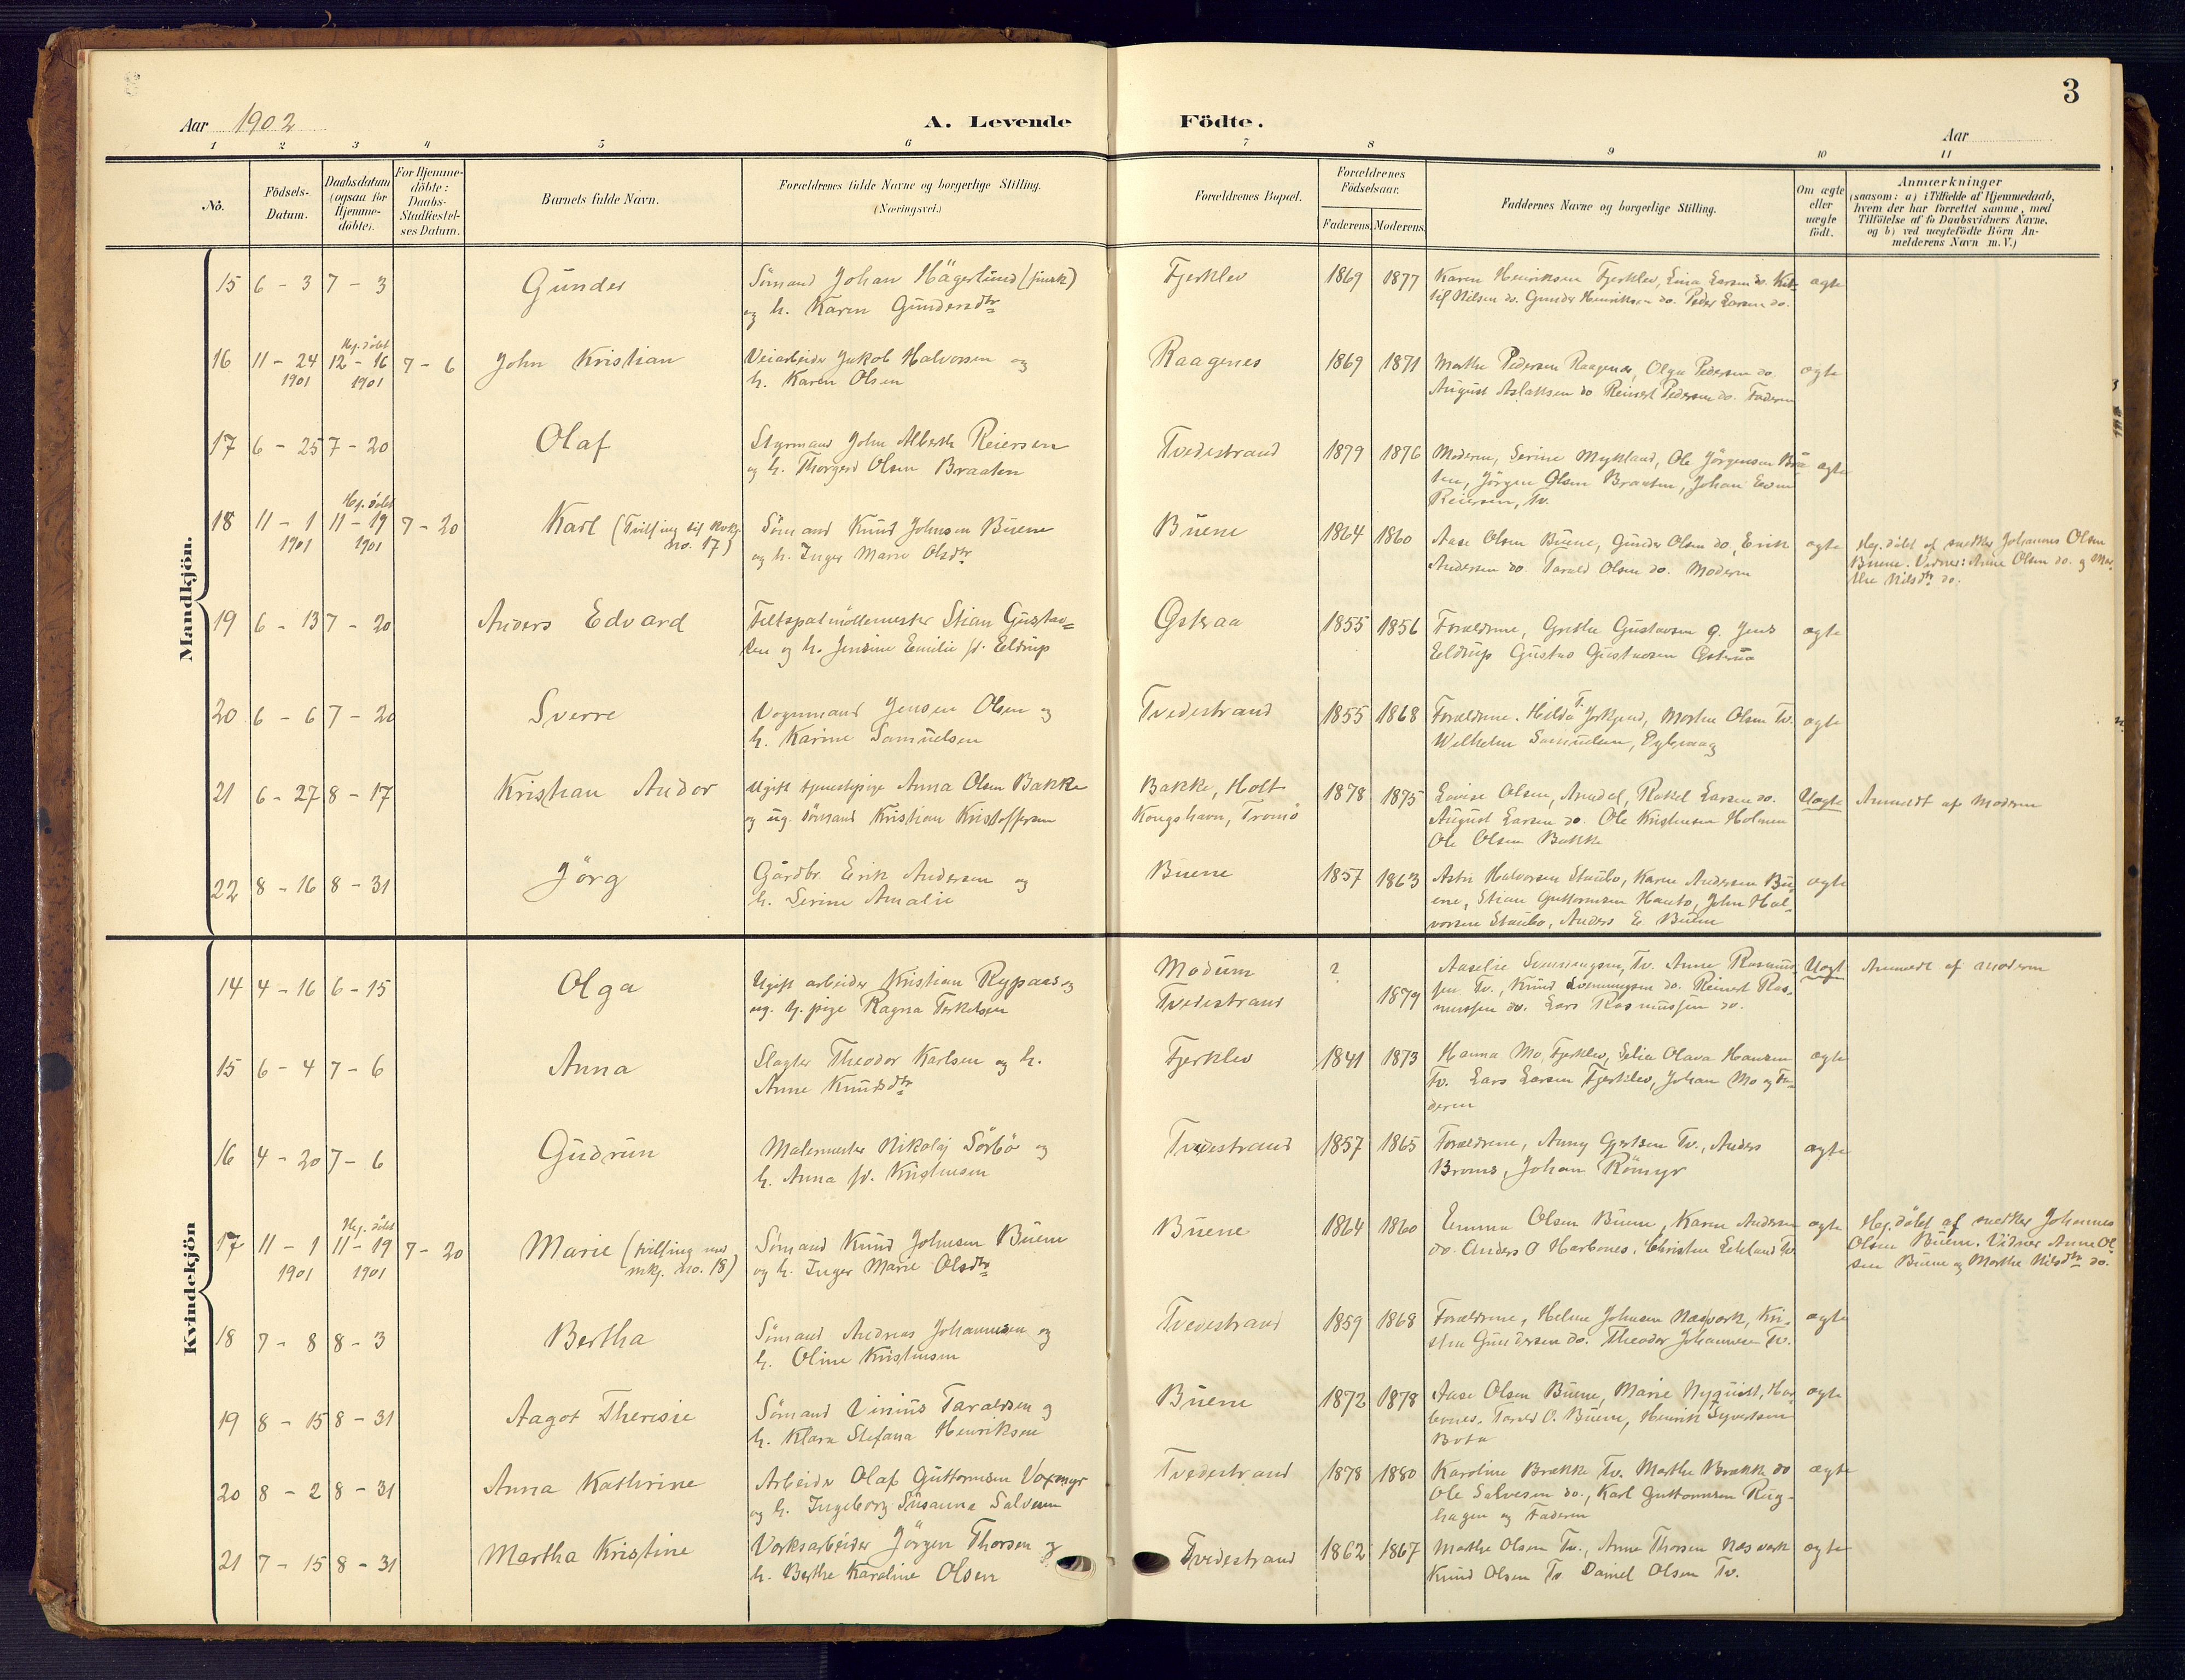 3
Aar 1902
A. Levende Födte.
Aar
1 2 3 4 5 6 7 8 9 10 11
No.
Födsels-Datum.
Daabsdatum (ogsaa för Hjemme-döbte).
For Hjemme-döbte: Daabs-Stadfæstel-ses Datum.
Barnets fulde Navn.
Forældrenes fulde Navne og borgerlige Stilling. (Næringsvei.)
Forældrenes Bopæl.
Forældrenes Födselsaar.
Faderens. Moderens.
Faddernes Navne og borgerlige Stilling.
Om ægte eller uægte födt.
Anmærkninger
(saasom: a) i Tilfælde af Hjemmedaab,
hvem der har forrettet samme, med
Tilföielse af to Daabsvidners Navne,
og b) ved uægtefödte Börn An-
melderens Navn m. V.)
Mandkjön.
15 6 - 3 7 - 3 Gunder
Sömand Johan Hägerlund (finsk)
og h. Karen Gundersdtr
Fjerklev 1869 1877
Karen Henriksen Fjerklev, Lina Larsen do. Kit-
til Nilsen do. Gunder Henriksen do. Peder Larsen do.
ægte
16 11 - 24 1901 Hj. döbt 12 - 16 1901 7 - 6 John Kristian
Veiarbeider Jakob Halvorsen og
h. Karen Olsen
Raagenes 1869 1871
Marthe Pedersen Raagenes, Olga Pedersen do.
August Aslaksen do Reinert Pedersen do. Faderen
ægte
17 6 - 25 7 - 20 Olaf
Styrmand John Alberth Reiersen
og h. Thorgerd Olsen Braaten
Tvedestrand 1879 1876
Moderen, Serine Mykland, Ole Jörgensen Braa-
ten, Jörgen Olsen Braaten, Johan
Reiersen, Tv.
ægte
18 11 - 1 1901 Hj. döbt 11 - 19 1901 7 - 20 Karl (Tvilling til kvkj. no. 17)
Sömand Knud Johnsen Buene
og h. Inger Marie Olsdtr
Buene 1864 1860
Aase Olsen Buene, Gunder Olsen do, Erik
Andersen do. Tarald Olsen do. Moderen
ægte
Hj. döbt af snedker Johannes Olsen
Buene. Vidner: Anne Olsen do. og Mar-
the Nilsdtr do.
19 6 - 13 7 - 20 Anders Edvard
Feltspatmöllemester Stian Gustav-
sen og h. Jensine Emilie f. Eeldrup
Østeraa 1855 1856
Forældrene, Grethe Gustavsen Ø. Jens
Eeldrup Gustav Gustavsen Østeraa
ægte
20 6 - 6 7 - 20 Sverre
Vognmand Jensen Olsen og
h. Karine Samuelsen
Tvedestrand 1855 1868
Forældrene. Hilda T. Jorkjend, Morten Olsen Tv.
Wilhelm Samuelsen, Dybvaag
ægte
21 6 - 27 8 - 17 Kristian Andor
Ugift tjenestepige Anna Olsen Bakke
og ug. sömand Kristian Kristoffersen
Bakke, Holt
Kongshavn, Tromö
1878 1875
Lovise Olsen, Arendal, Rakel Larsen do.
August Larsen do. Ole Kristensen Holmen
Ole Olsen Bakke
Uægte
Anmeldt af moderen
22 8 - 16 8 - 31 Jörg
Gårdbr. Erik Andersen og
h. Serine Amalie
Buene 1857 1863
Astri Halvorsen Staubo, Karen Andersen Bu-
ene, Stian Guttormsen Hanto, John Hal-
vorsen Staubo, Anders E. Buene
ægte
Kvindekjön
14 4 - 16 6 - 15 Olga
Ugift arbeider Kristian Rypaas og
ug. tj. pige Ragna Terkelsen
Modum ?
Tvedestrand 1879
Aaselie Svenningsen, Tv. Anne Rasmus-
sen Tv., Knud Svenningsen do. Reinert Ras-
mussen do. Lars Rasmussen do.
Uægt
Anmeldt af moderen
15 6 - 4 7 - 6 Anna
Slagter Theodor Karlsen og h.
Anne Knudsdtr
Fjerklev 1841 1873
Hanna Mo, Fjerklev, Selia Olava Hansen
Tv. Lars Larsen Fjerklev, Johan Mo og Fa-
deren
ægte
16 4 - 20 7 - 6 Gudrun
Malermester Nikolaj Sörbö og
h. Anna f. Kristensen
Tvedestrand 1857 1865
Forældrene, Anny Gjertsen Tv., Anders
Broms, Johan Römyr
ægte
17 11 - 1 1901 Hj. döbt 11 - 19 1901 7 - 20 Marie (tvilling med mkj. no. 18)
Sömand Knud Johnsen Buene
og h. Inger Marie Olsdtr
Buene 1864 1860
Emma Olsen Buene, Karen Andersen
do. Anders O Harbones. Christen Eskeland Tv
ægte
Hj. döbt af snedker Johannes
Olsen Buene. Vidner Anne Ol-
sen Buene og Marthe Nilsdtr do.
18 7 - 8 8 - 3 Bertha
Sömand Andreas Johannesen og
h. Oline Kristensen
Tvedestrand 1859 1868
Forældrene, Helene Johnsen Næsverk, Kri-
sten Gundersen do. Theodor Johannesen Tv.
ægte
19 8 - 15 8 - 31 Aagot Theresie
Sömand Vinius Taraldsen og
h. Klara Stefana Henriksen
Buene 1872 1878
Aase Olsen Buene, Marie Nyquist, Har-
bones. Tarald O. Buene, Henrik Syvertsen
Bota
ægte
20 8 - 2 8 - 31 Anna Kathrine
Arbeider Olaf Guttormsen Voxmyr
og h. Ingeborg Susanna Salvesen
Tvedestrand 1878 1880
Karoline Brække Tv. Marthe Brække do
Ole Salvesen do., Karl Guttormsen Rug-
hagen og Faderen
ægte
21 7 - 15 8 - 31 Martha Kristine
Verksarbeider Jörgen Thorsen og
h. Berthe Karoline Olsen
Tvedestrand 1862 1867
Marthe Olsen Tv., Anne Thorsen Næs verk
Knud Olsen Tv Daniel Olsen Tv.
ægte